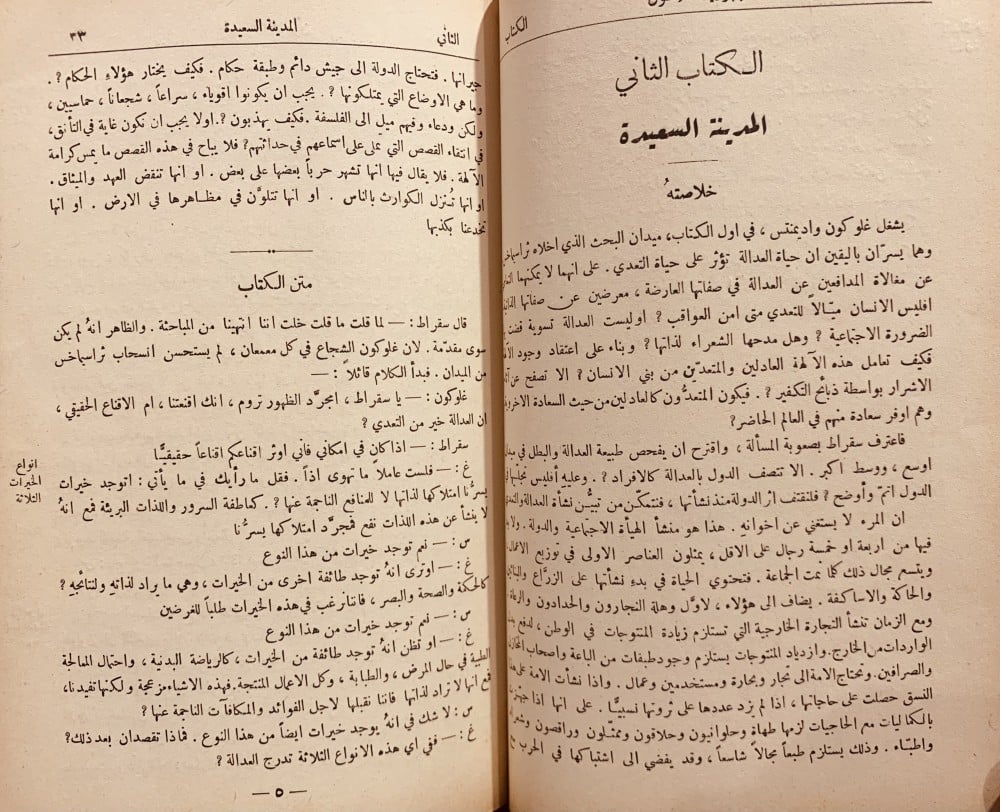 الكتاب الثاني
المدينة السعيدة
خلاصتهُ
يشغل غلوكون واديمنتس ، في اول الكتاب، ميدان البحث الذي اخلاه ثراسيماخس
وهما يسرّان باليقين ان حياة العدالة تؤثر على حياة التعدي . على انهما لا يمكنهما
عن مغالاة المدافعين عن العدالة في صفاتها العارضة ، معرضين عن صفاتها
افليس الانسان ميّالاً للتعدي متى امن العواقب ? اوليست العدالة تسوية قضت
الضرورة الاجتماعية ? وهل مدحها الشعراء لذاتها ? وبناء على اعتقاد وجود
فكيف تعامل هذه الآلهة العادلين والمتعدّين من بني الانسان ? الا تصفح عن
الاشرار بواسطة ذبائح التكفير ? . فيكون المتعدُّون كالعادلين من حيث السعادة الاخروية
وهم اوفر سعادة منهم في العالم الحاضر?
فاعترف سقراط بصعوبة المسألة ، واقترح ان يفحص طبيعة العدالة والبطل في
اوسع ، ووسط اكبر . الا تتصف الدول بالعدالة كالافراد ? . وعليه أفليس
الدول اتمّ وأوضح ? فلنقتف اثر الدولة منذ نشأتها ، فنتمكّن من تبيُّن نشأة العدالة والتعدي
ان المرء لا يستغني عن اخوانه . هذا هو منشأ الهيأة الاجتماعية والدولة . ولا
فيها من اربعة او خمسة رجال على الاقل ، يمثلون العناصر الاولى في توزيع الاعمال
ويتسع مجال ذلك كلما نمت الجماعة . فتحتوي الحياة في بدءِ نشأتها على الزرَّاع
والحاكة والاساكفة . يضاف الى هؤلاء ، لاوَّل وهلة النجارون والحدادون
ومع الزمان تنشأ التجارة الخارجية التي تستلزم زيادة المنتوجات في الوطن ، لدفع
الواردات من الخارج. وازدياد المنتوجات يستلزم وجود طبقات من الباعة واصحاب
والصرافين. وتحتاج الامة الى تجار وبحارة ومستخدمين وعمال . واذا نشأت الامة على هذا
النسق حصلت على حاجاتها ، اذا لم يزد عددها على ثروتها نسبيًّا . على انها اذا
بالكماليات مع الحاجيات لزمها طهاة وحلوانيون وحلاقون وممثلون وراقصون وشعراء
واطباء . وذلك يستلزم طبعاً مجالاً شاسعاً ، وقد يفضي الى اشتباكها في الحرب مع
الثاني
المدينة السعيدة
٣٣
جيرانها . فتحتاج الدولة الى جيش دائم وطبقة حكام . فكيف يختار هؤلاءِ الحكام ? .
وما هي الاوضاع التي يمتلكونها ? . يجب ان يكونوا اقوياء ، سراعاً ، شجعاناً ، حماسيين ،
ولكن ودعاء وفيهم ميل الى الفلسفة . فكيف يهذبون ? . اولا يجب ان نكون غاية في التأنق،
في انتقاء القصص التي تملى على اسماعهم في حداثتهم? فلا يباح في هذه القصص ما يمس كرامة
الآلهة . فلا يقال فيها انها تشهر حرباً بعضها على بعض . او انها تنقض العهد والميثاق .
او انها تُنزل الكوارث بالناس . او انها تتلوَّن في مظاهرها في الارض . او انها
تخدعنا بكذبها
متن الكتاب
قال سقراط: — لما قلت ما قلت خلت اننا انتهينا من المباحثة . والظاهر انهُ لم يكن
سوى مقدّمة . لان غلوكون الشجاع في كل معمعان ، لم يستحسن انسحاب ثراسيماخس
من الميدان . فبدأ الكلام قائلاً : —
غلوكون: — يا سقراط ، امجرَّد الظهور تروم ، انك اقنعتنا ، ام الاقناع الحقيقي ،
ان العدالة خير من التعدي ?
سقراط: — اذا كان في امكاني فاني اوثر اقناعكم اقناعاً حقيقيًّا
غ: — فلست عاملاً ما تهوى اذاً . فقل ما رأيك في ما يأتي : اتوجد خيرات
انواع
الخيرات
الثلاثة
يسرُّنا امتلاكها لذاتها لا للمنافع الناجمة عنها ? . كعاطفة السرور واللذات البريئة فمع انهُ
لا ينشأ عن هذه اللذات نفع فمجرَّد امتلاكها يسرُّنا
س: — نعم توجد خيرات من هذا النوع
غ: — اوترى انهُ توجد طائفة اخرى من الخيرات ، وهي ما يراد لذاته ولنتائجه ?
كالحكمة والصحة والبصر ، فاننا نرغب في هذه الخيرات طلباً للغرضين
س: — نعم توجد خيرات من هذا النوع
غ: — او تظن انهُ توجد طائفة من الخيرات ، كالرياضة البدنية ، واحتمال المعالجة
الطبية في حال المرض ، والطبابة ، وكل الاعمال المنتجة. فهذه الاشياء مزعجة ولكنها تفيدنا،
فمع انها لا تراد لذاتها فاننا نقبلها لاجل الفوائد والمكافآت الناجمة عنها ?
س: لا شك في انهُ يوجد خيرات ايضاً من هذا النوع . فماذا تقصدان بعد ذلك?
غ: — ففي اي هذه الانواع الثلاثة تدرج العدالة ?
— ٥ —